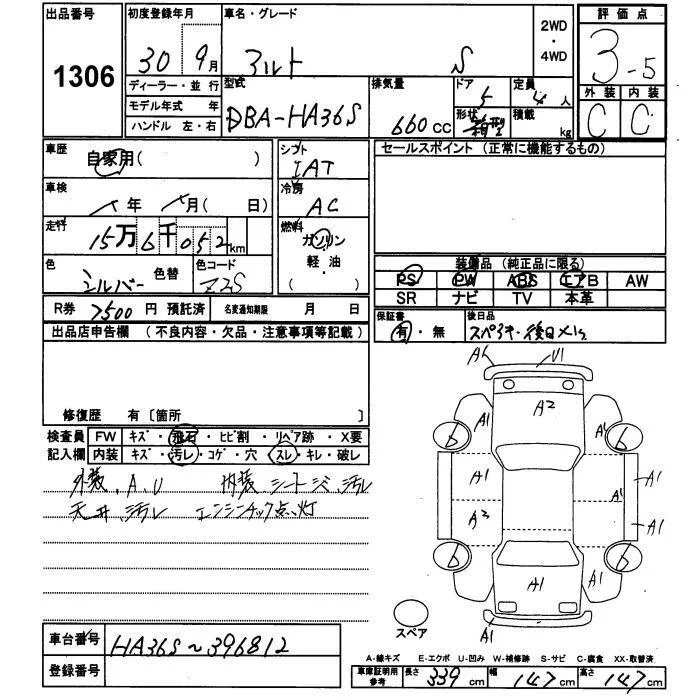 出品番号
1306
初度登録年月
30 9月
車名・グレード
アルト S
2WD
・
4WD
評価点
3-5
外装 内装
C C
ディーラー・並 行
モデル年式 年
ハンドル 左・右
型式
DBA-HA36S
排気量
660 CC
ドア
5
形状
箱型
定員
4人
積載
kg
車歴
自家用( )
車検
年 月( 日)
走行
15万6千052km
色
シルバー 色替
色コード
Z2S
シフト
IAT
冷房
AC
燃料
ガソリン
軽・油
( )
セールスポイント (正常に機能するもの)
装備品 (純正品に限る)
PS PW ABS エアB AW
SR ナビ TV 本革
R券 7500 円 預託済 名変通知期限 月 日
保証書
有・無
後日品
スペアキー・後日メイン
出品店申告欄 (不良内容・欠品・注意事項等記載)
修復歴 有〔箇所 〕
検査員
記入欄
FW キズ・飛石・ヒビ割・リペア跡・X要
内装 キズ・汚レ・コゲ・穴・スレ・キレ・破レ
外装、A、U 内装 シートシミ、汚レ
天井、汚レ エンジンチェック点灯
A1 U1
A2
A1 A1
b b
A1 A1 A1
A2 A1
b b
A1 A1
A1
スペア
車台番号
HA36S~396812
登録番号
A-線キズ E-エクボ U-凹み W-補修跡 S-サビ C-腐食 XX-取替済
車庫証明用
参考
長さ 339 cm 幅 147 cm 高さ 147 cm